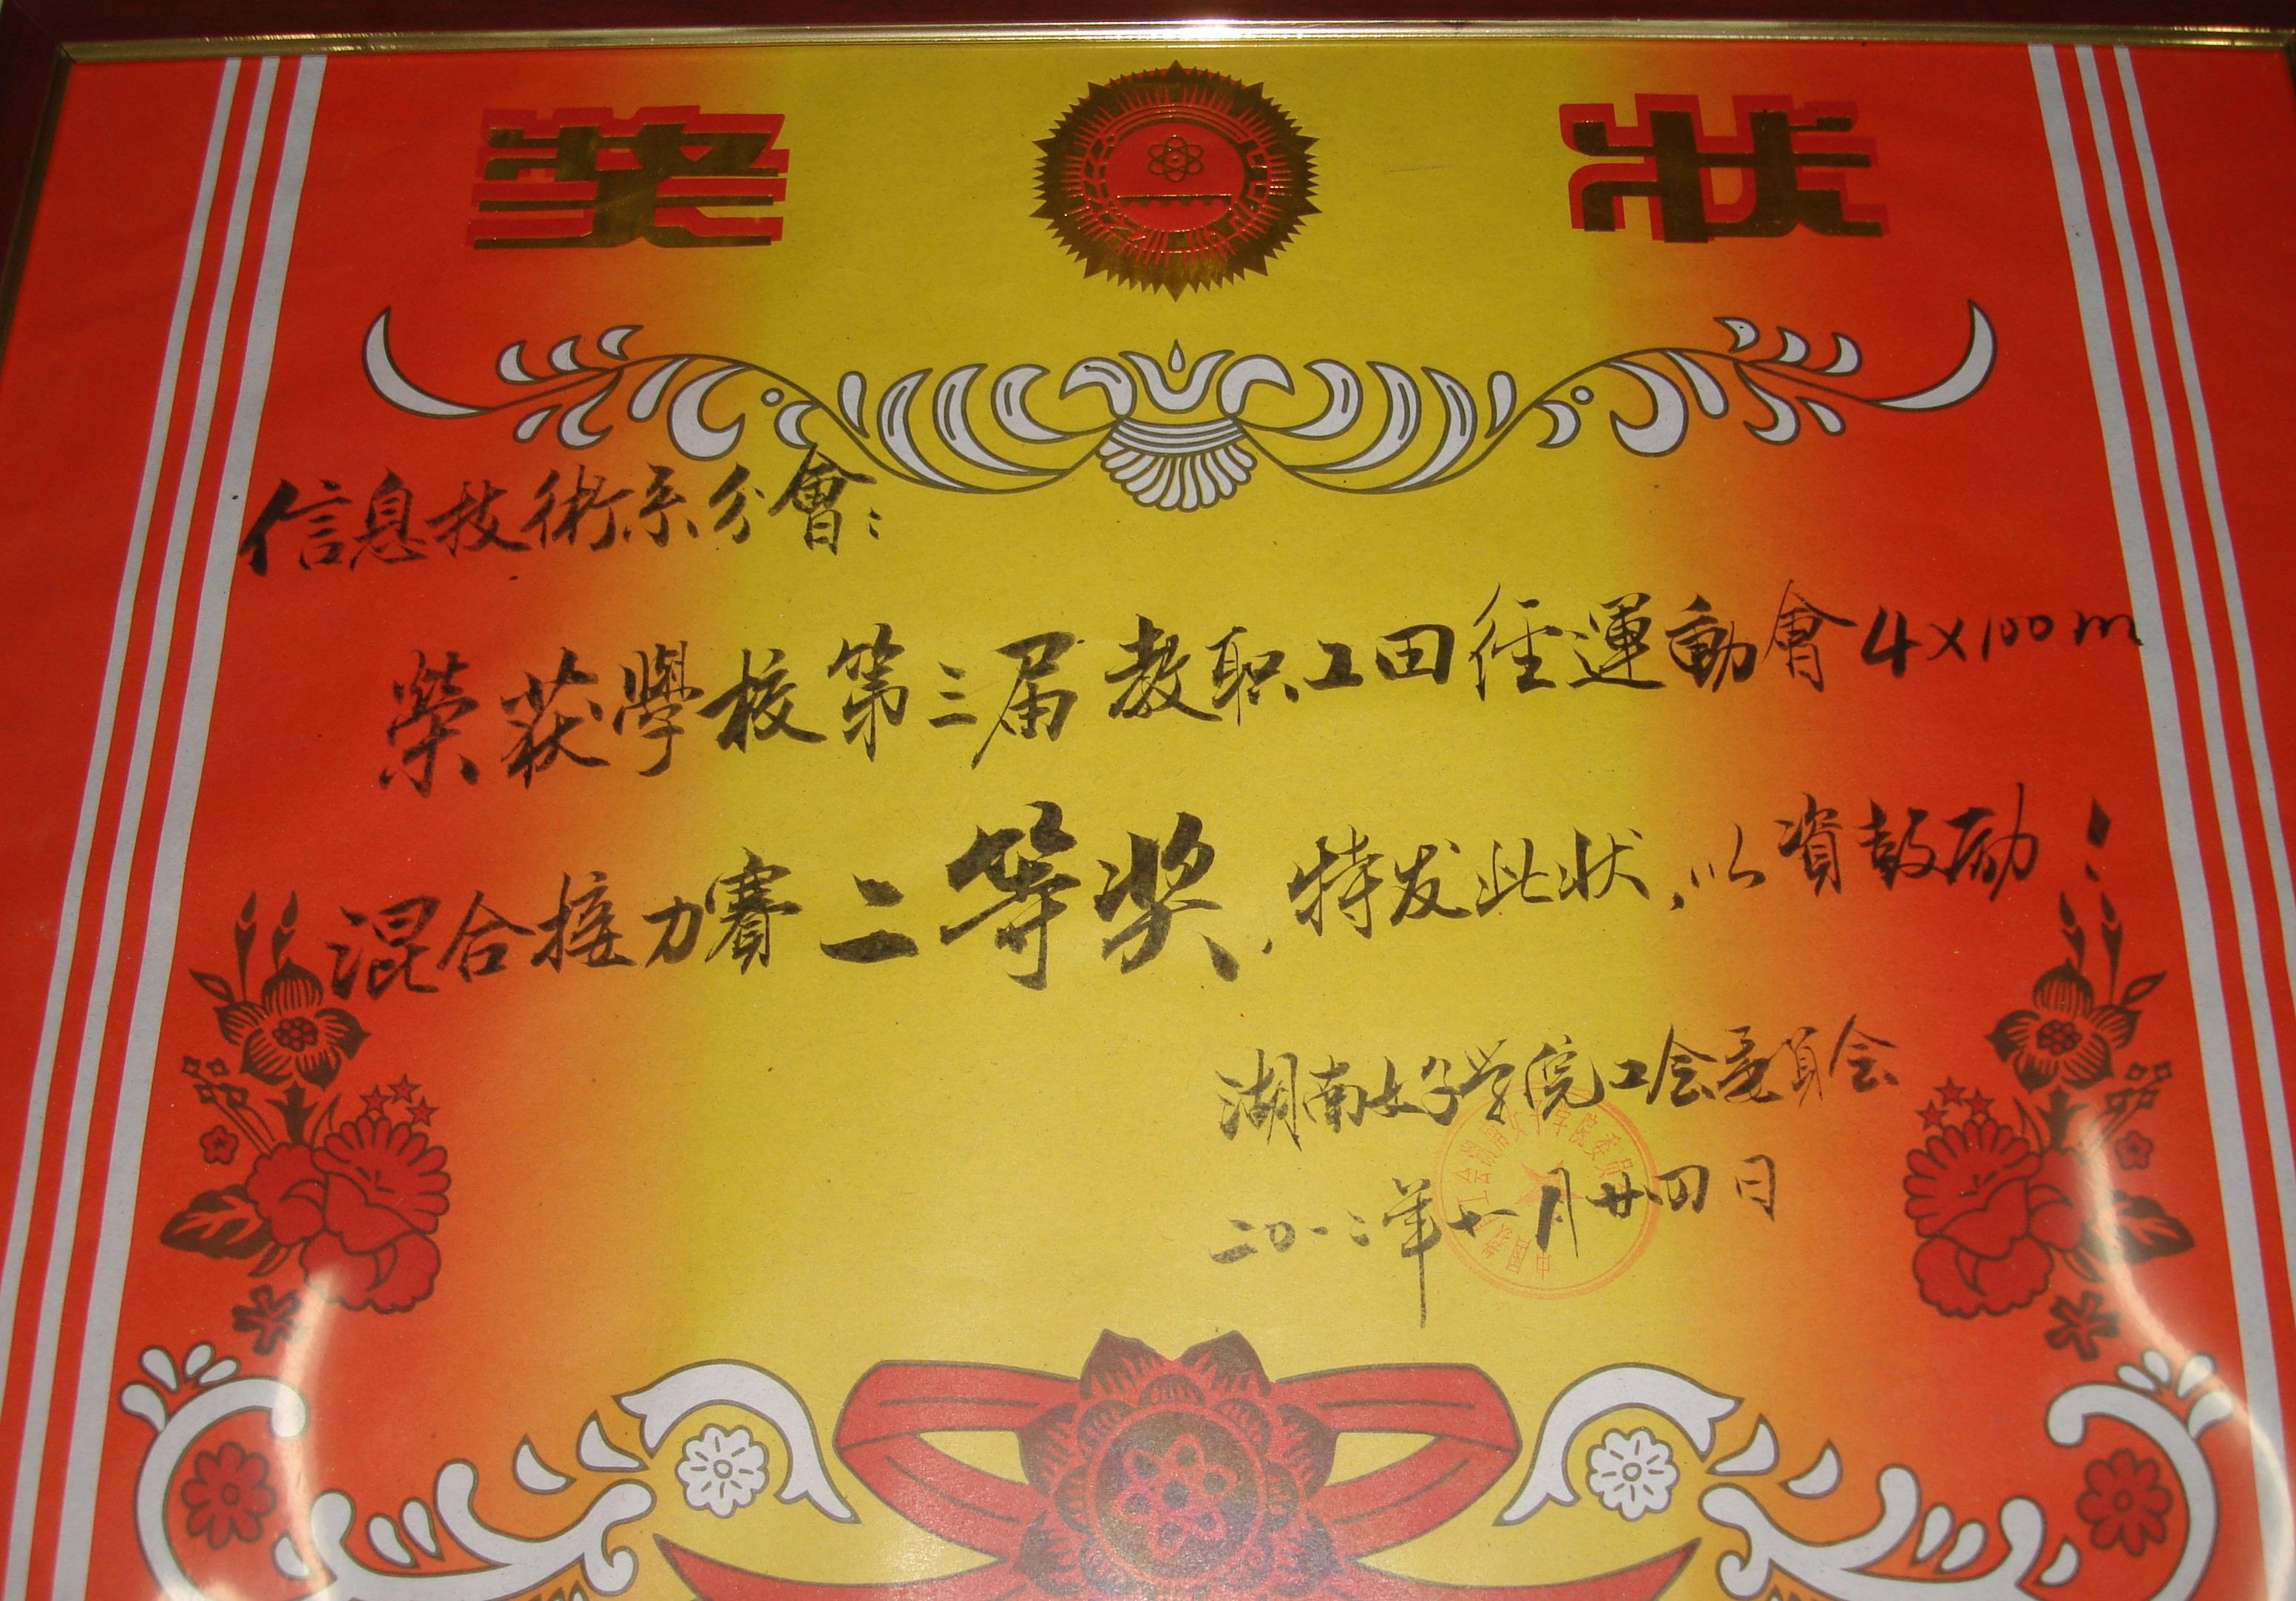 奖状
信息技術系分會：
榮获學校第三届教职工田径運動會4×100m
混合接力賽二等奖，特发此状，以資鼓励！
湖南女子学院工会委員会
二〇一二年十一月廿四日